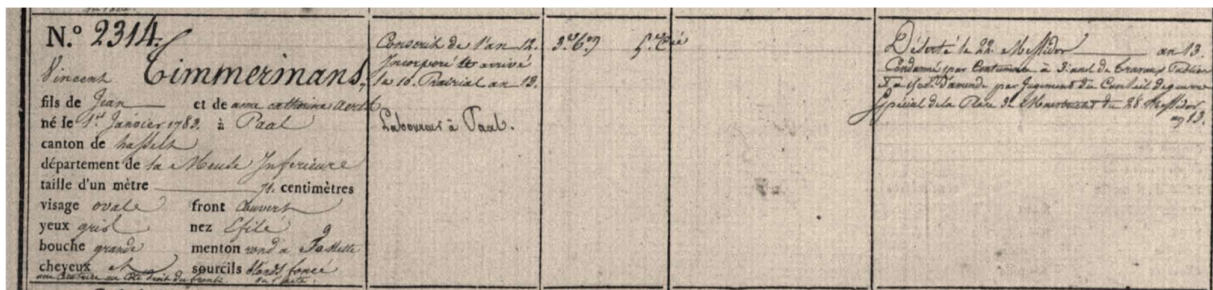 N.º 2314.
Vincent Timmermans,
fils de Jean et de anne catherine
né le 1er Janvier 1783. à Paal
canton de hasselt
département de la Meuse Inferieure
taille d'un mètre 71. centimètres
visage ovale front Couvert
yeux gris nez Efilé
bouche grande menton rond a Fossette
cheveux et sourcils blonds foncé
une Cicatrice au Côté droit du front
Conscrit de l'an 12.
Incorporé et arrivé
le 10. Prairial an 13.
Laboureur à Paal.
3.e B.on 5.e Cie
Déserté le 22. Messidor an 13.
Condamné par Contumace à 3. ans de travaux Publics
d'amende par Jugement du Conseil de guerre
Spécial de la Place de du 28 Messidor
an 13.